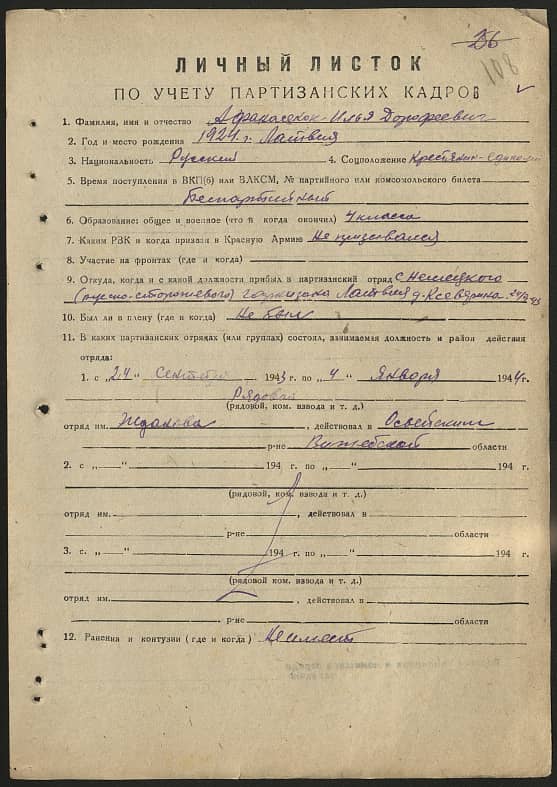 26
108
ЛИЧНЫЙ ЛИСТОК
ПО УЧЕТУ ПАРТИЗАНСКИХ КАДРОВ
1. Фамилия, имя и отчество Афанасенок Илья Дорофеевич
2. Год и место рождения 1924 г. Латвия
3. Национальность Русский 4. Соцположение Крестьянин-едино
5. Время поступления в ВКП(б) или ВЛКСМ, № партийного или комсомольского билета
Беспартийный
6. Образование: общее и военное (что и когда окончил) 4 класса
7. Каким РВК и когда призван в Красную Армию Не призывался
8. Участие на фронтах (где и когда)
9. Откуда, когда и с какой должности прибыл в партизанский отряд с Немецкого
гарнизона Латвия д.
10. Был ли в плену (где и когда) Не был
11. В каких партизанских отрядах (или группах) состоял, занимаемая должность и район действия
отряда:
1. с „24 Сентябр 1943 г. по „4 “ Января 1944 г.
Рядовой
(рядовой, ком. взвода и т. д.)
отряд им. Жданова, действовал в Освейским
р-не Витебской области
2. с „—“ 194 г. по „—“ 194 г.
(рядовой, ком. взвода и т. д.)
отряд им. , действовал в
р-не области
3. с „—“ 194 г. по „—“ 194 г.
(рядовой ком. взвода и т. д.)
отряд им. , действовал в
р-не области
12. Ранения и контузии (где и когда) Не имеет